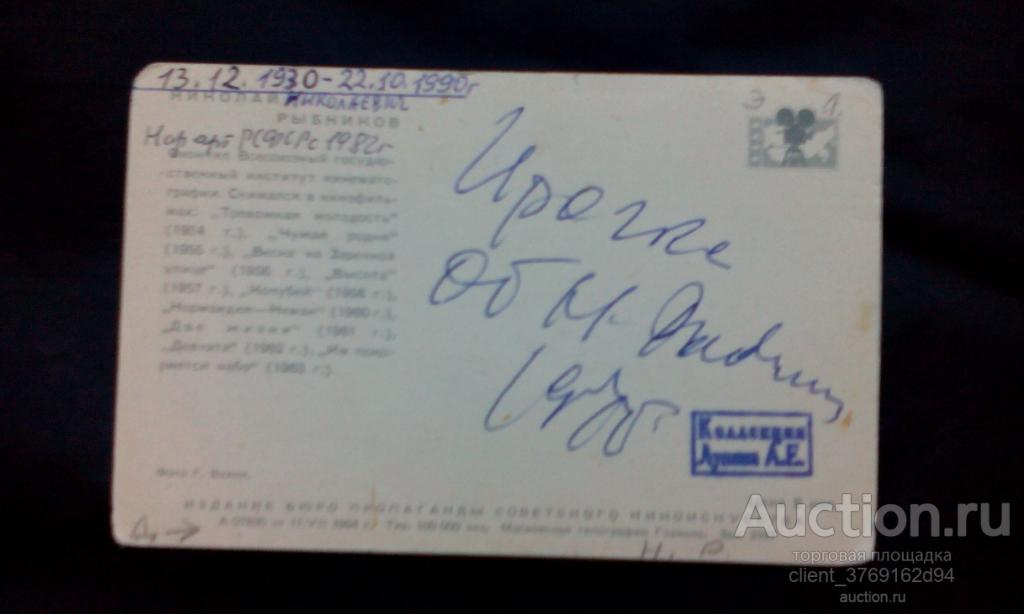 13.12.1930-22.10.1990г
НИКОЛАЙ НИКОЛАЕВИЧ
РЫБНИКОВ
Нар арт РСФСРс 1982г
Окончил Всесоюзный государ-
ственный институт кинемато-
графии. Снимался в кинофиль-
мах: „Тревожная молодость"
(1954 г.), „Чужая родня"
(1955 г.), „Весна на Заречной
улице" (1956 г.), „Высота"
(1957 г.), (1958 г.),
„Нормандия—Неман" (1960 г.),
„Две жизни" (1961 г.),
„Девчата" (1962 г.), „Им поко-
ряется небо" (1963 г.).
Фото Г.
Э 1.
Ирочке
От
Коллекция
А.Е.
ИЗДАНИЕ БЮРО ПРОПАГАНДЫ СОВЕТСКОГО
1964 г. Тир. 100 000 экз. Московская типография
Д →
Н. Р.
Auction.ru
торговая площадка
client_3769162d94
auction.ru